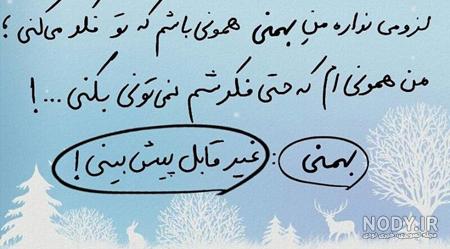 لزومی نداره منِ بهمنی همونی باشم که تو فکر می‌کنی؛
من همونی ام که حتی فکرشم نمی‌تونی بکنی...!
بهمنی: غیر قابل پیش بینی!
NODY.IR